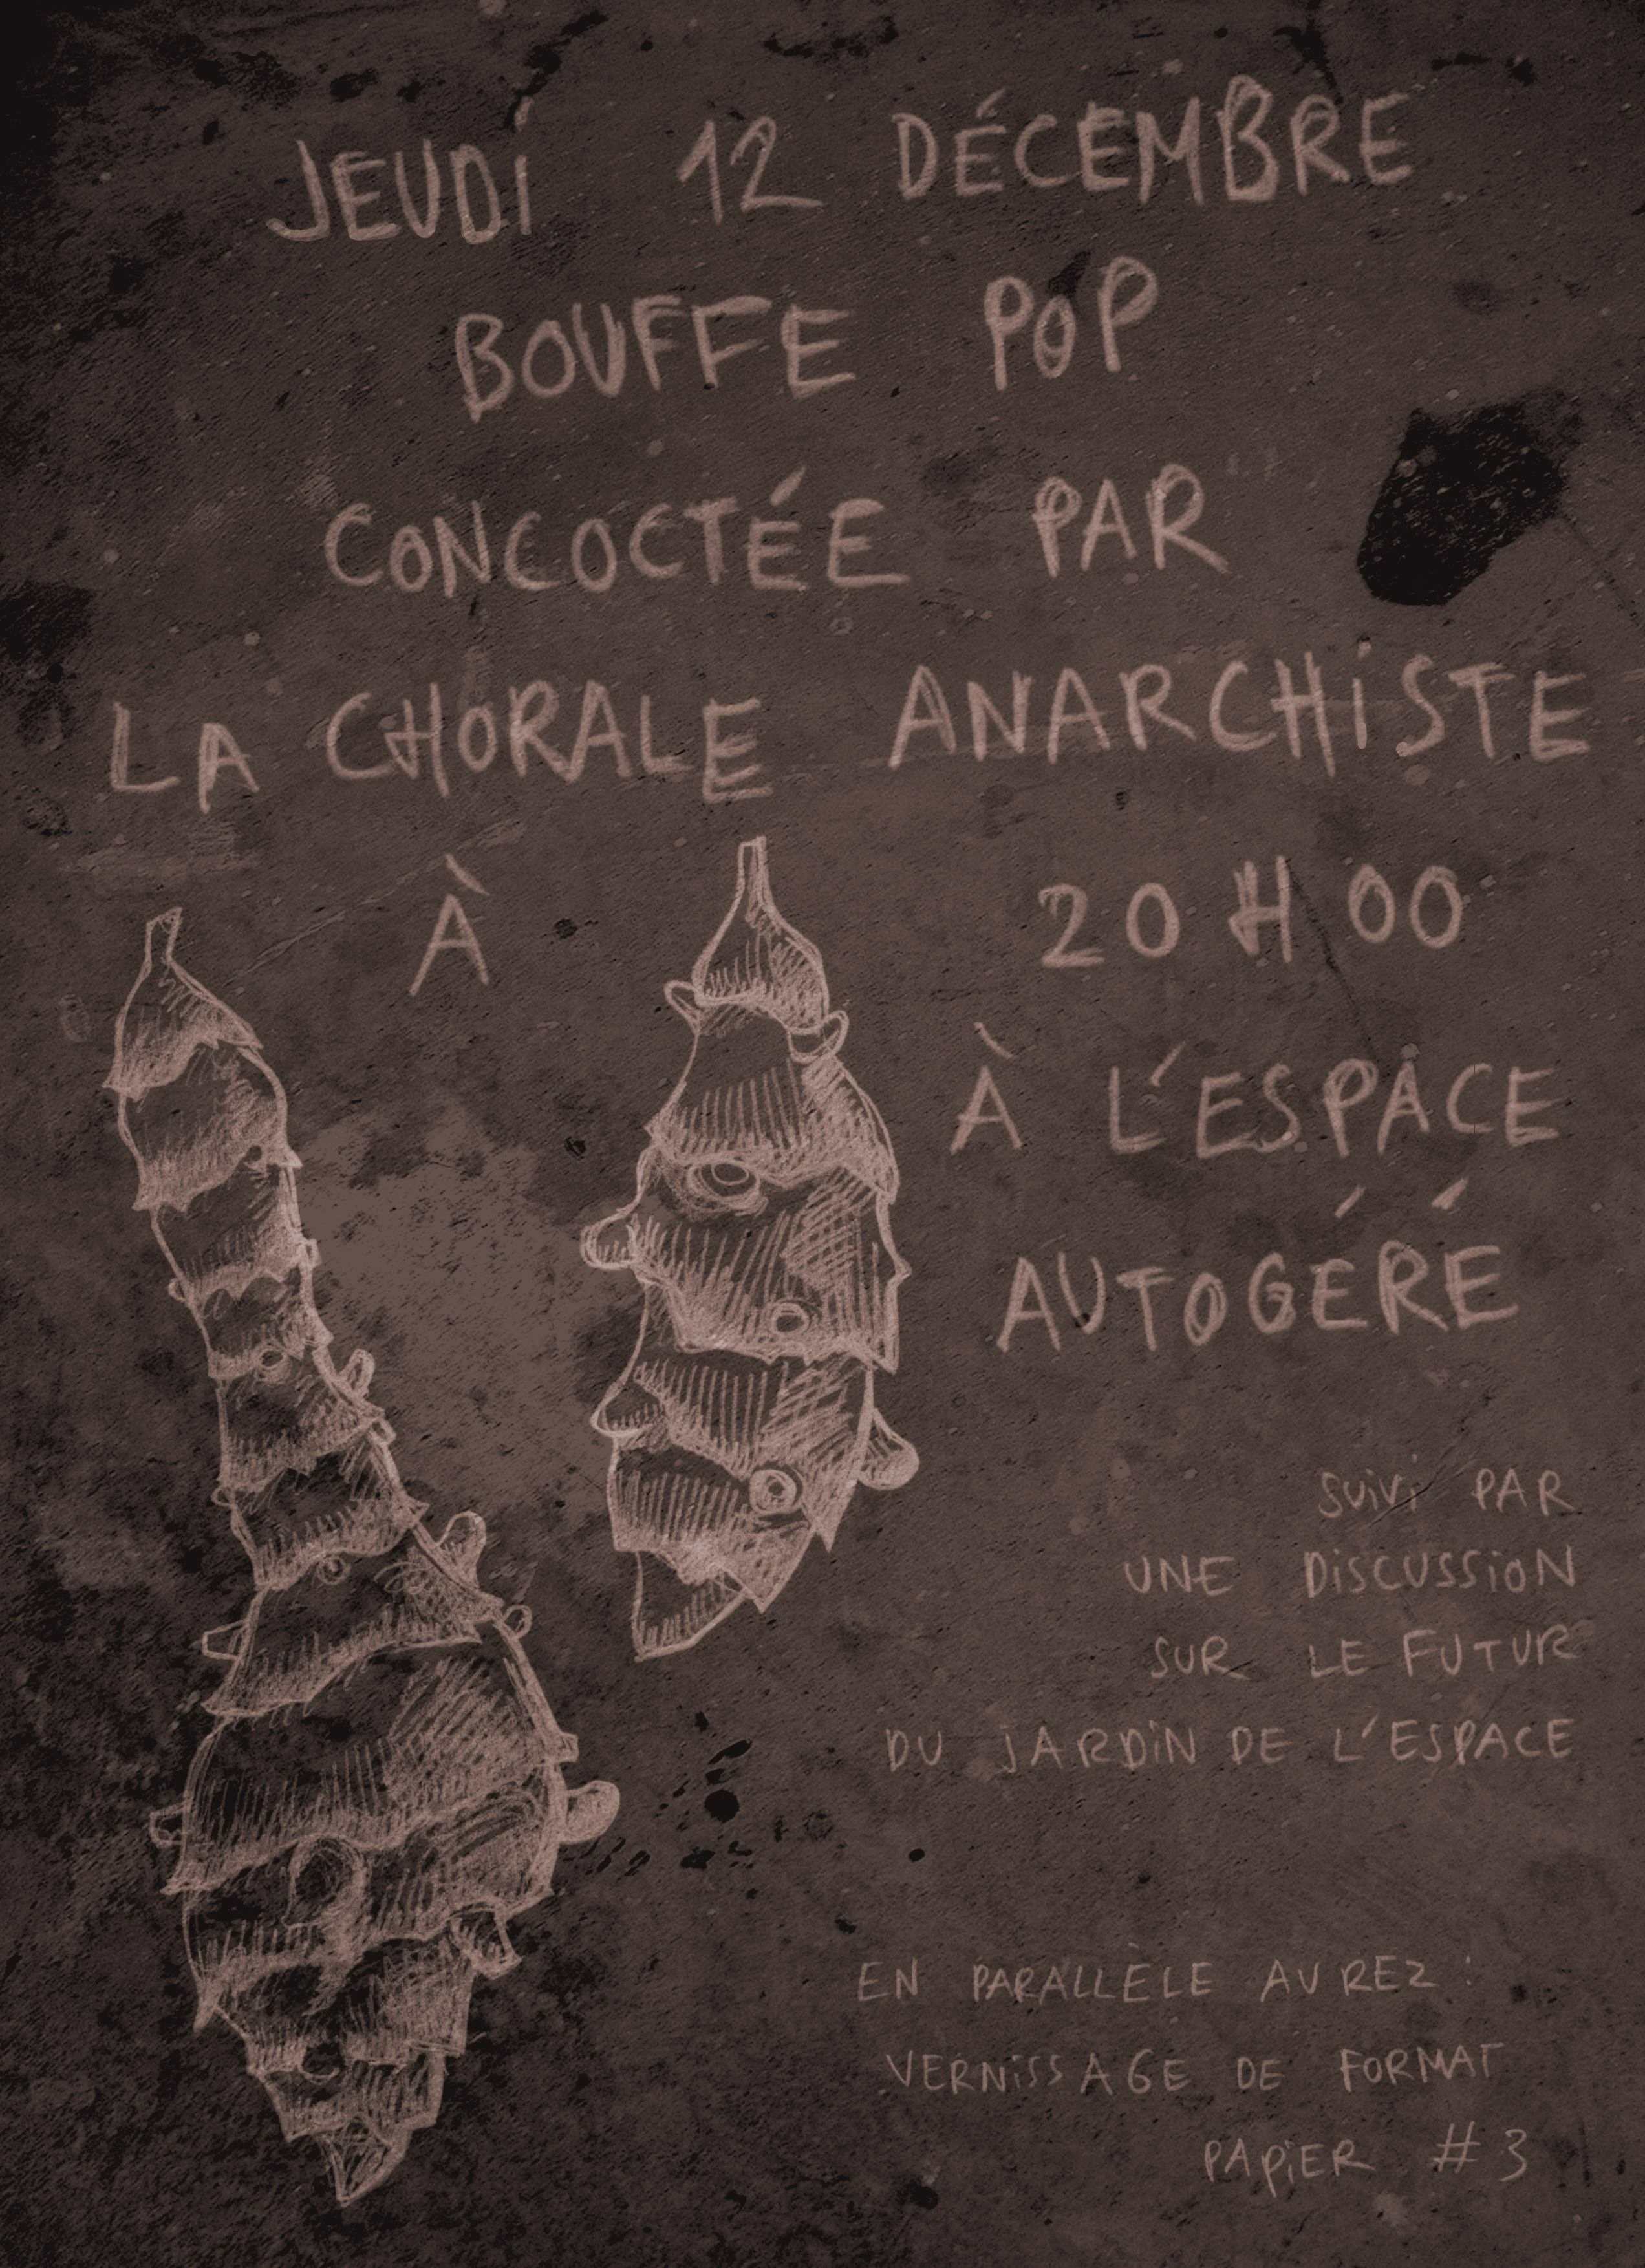 JEUDI 12 DÉCEMBRE
BOUFFE POP
CONCOCTÉE PAR
LA CHORALE ANARCHISTE
À 20H00
À L'ESPACE
AUTOGÉRÉ
SUIVI PAR
UNE DISCUSSION
SUR LE FUTUR
DU JARDIN DE L'ESPACE
EN PARALLÈLE AU REZ :
VERNISSAGE DE FORMAT
PAPIER #3